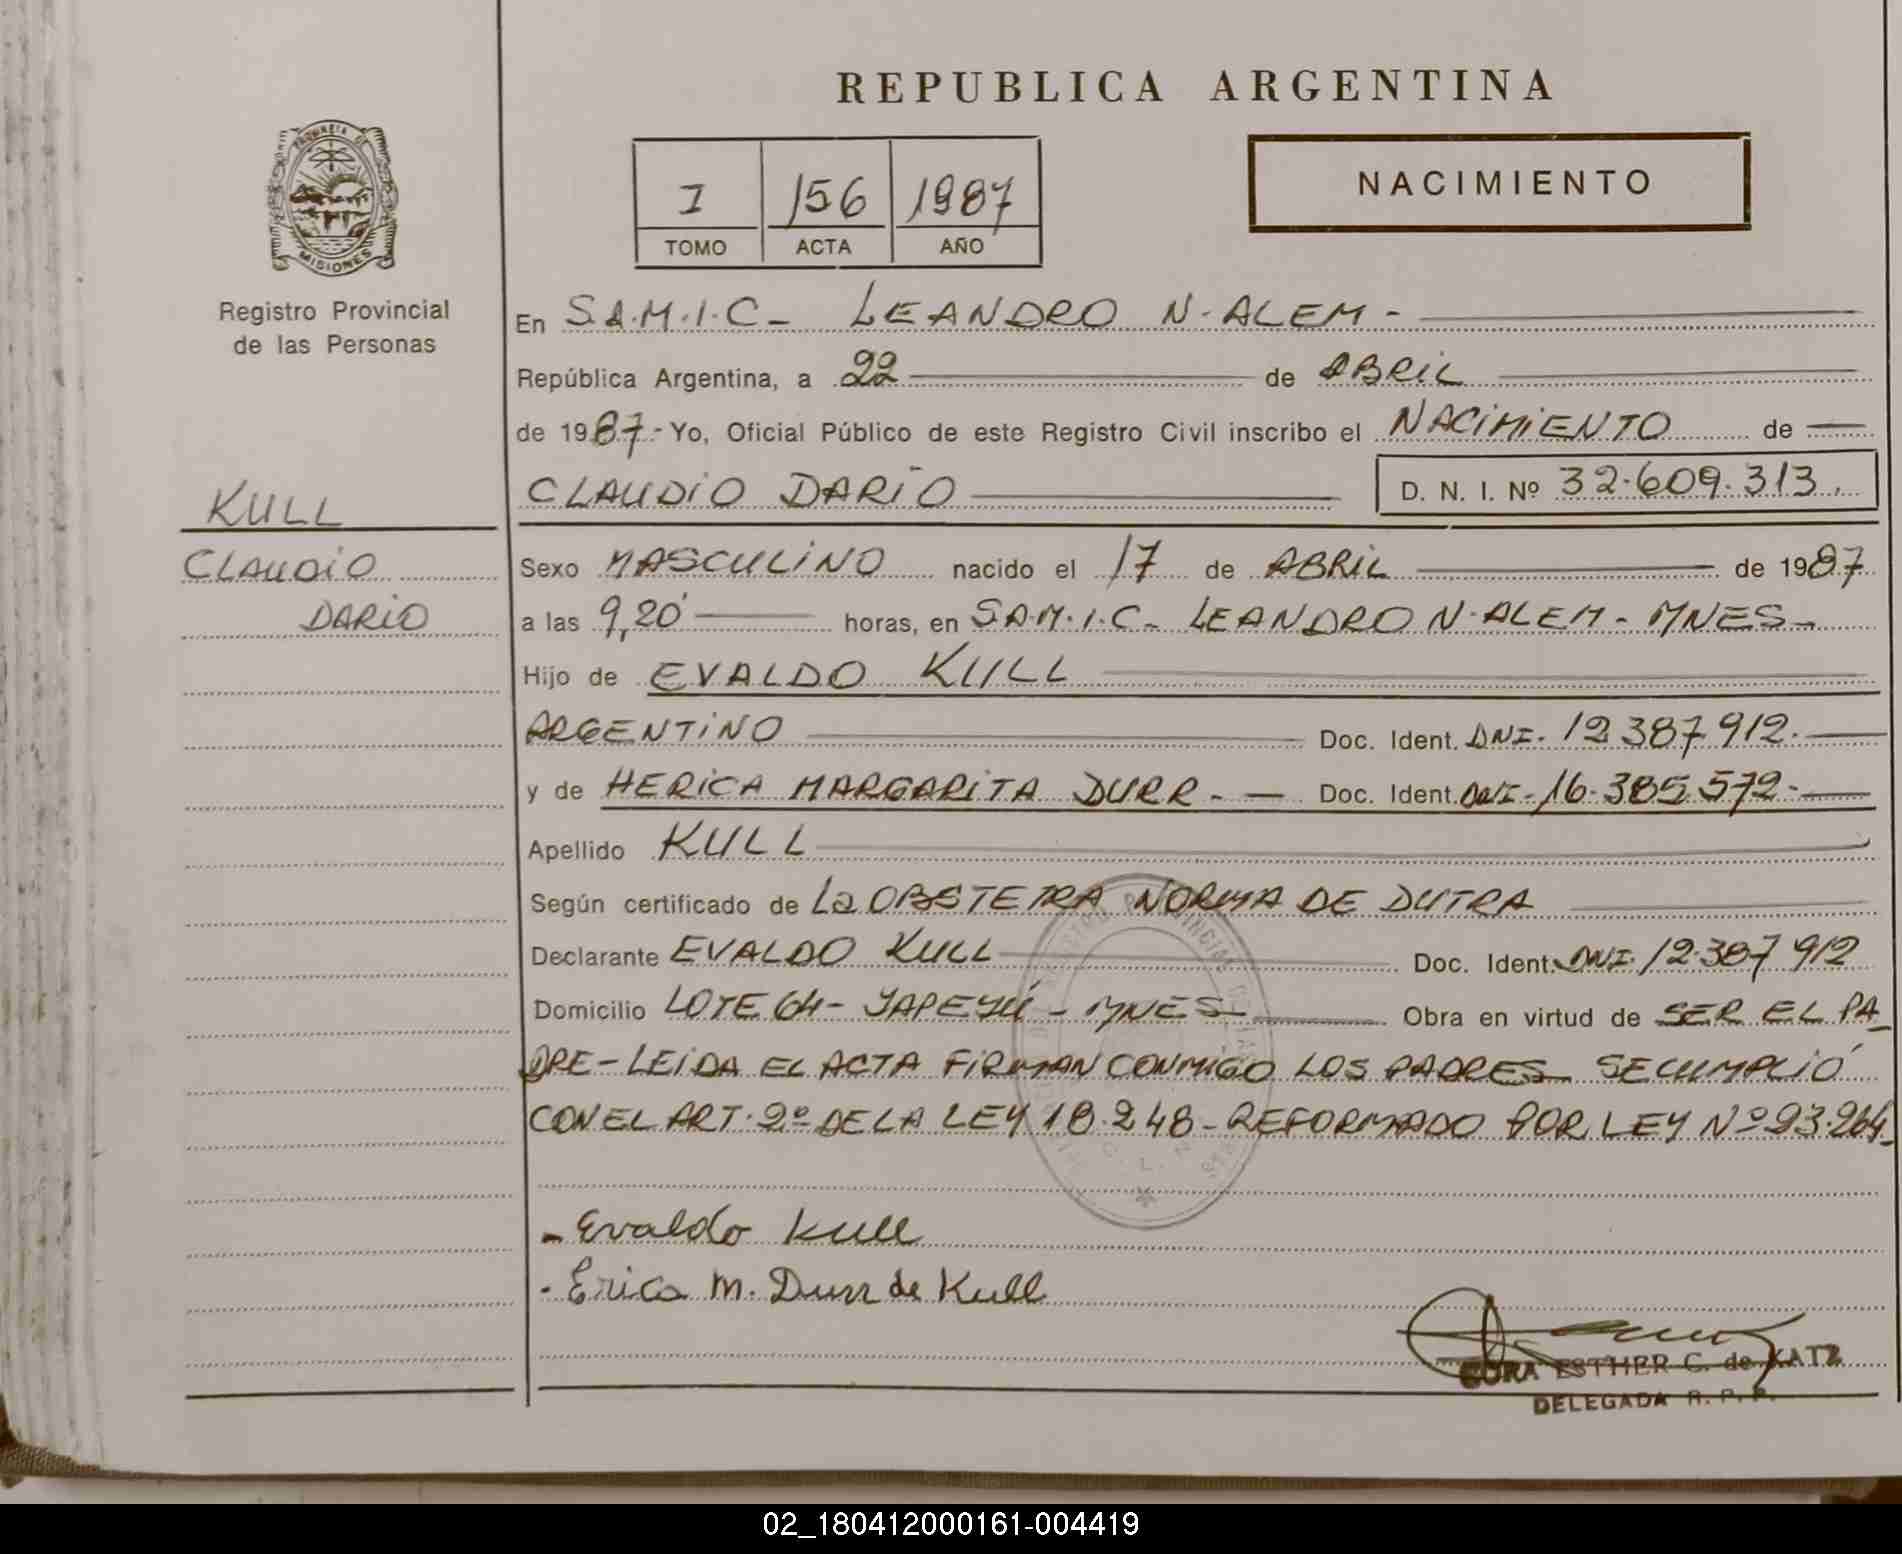 REPUBLICA ARGENTINA
PROVINCIA DE
MISIONES
Registro Provincial
de las Personas
I 156 1987
TOMO ACTA AÑO
NACIMIENTO
En S.A.M.I.C- LEANDRO N. ALEM -
República Argentina, a 22 de ABRIL
de 1987.- Yo, Oficial Público de este Registro Civil inscribo el NACIMIENTO de
CLAUDIO DARIO D. N. I. Nº 32.609.313.
KULL
CLAUDIO
DARIO
Sexo MASCULINO nacido el 17 de ABRIL de 1987
a las 9,20' horas, en S.A.M.I.C- LEANDRO N. ALEM - MNES-
Hijo de EVALDO KULL
ARGENTINO Doc. Ident. DNI. 12 387 912.
y de HERICA MARGARITA DURR.- Doc. Ident. DNI- 16.385.572-
Apellido KULL
Según certificado de La OBSTETRA NORMA DE DUTRA
Declarante EVALDO KULL Doc. Ident. DNI. 12.387 912
Domicilio LOTE 64- YAPEYÚ - MNES- Obra en virtud de SER EL PA_
DRE-LEIDA EL ACTA FIRMAN CONMIGO LOS PADRES SE CUMPLIÓ
CON EL ART. 2º DE LA LEY 18.248- REFORMADO POR LEY Nº 23.264-
- Evaldo Kull
- Erica M. Durr de Kull
ESTHER C. de KATZ
DELEGADA R. P. P.
02_180412000161-004419